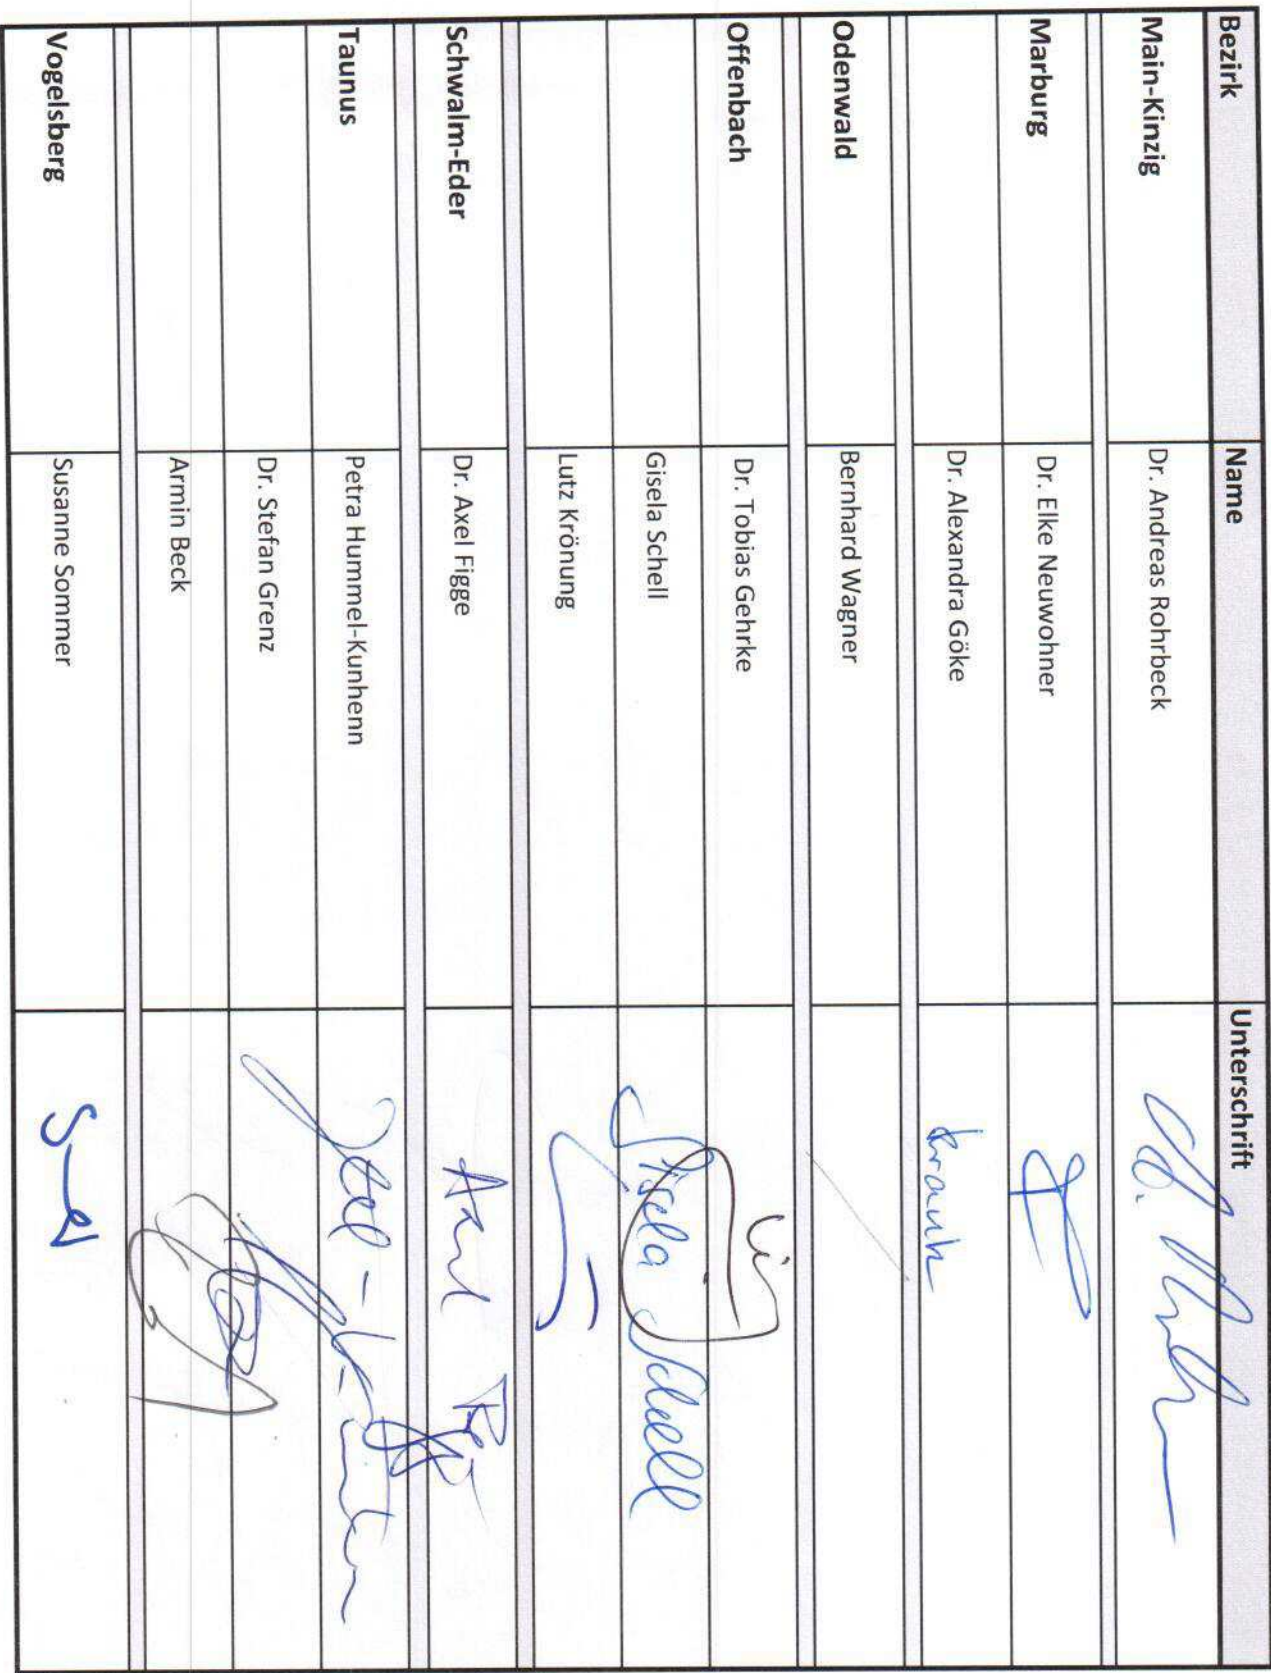 Bezirk Name Unterschrift
Main-Kinzig Dr. Andreas Rohrbeck
Marburg Dr. Elke Neuwohner
Dr. Alexandra Göke krank
Odenwald Bernhard Wagner
Offenbach Dr. Tobias Gehrke
Gisela Schell Gisela Schell
Lutz Krönung
Schwalm-Eder Dr. Axel Figge Axel Figge
Taunus Petra Hummel-Kunhenn
Dr. Stefan Grenz
Armin Beck
Vogelsberg Susanne Sommer